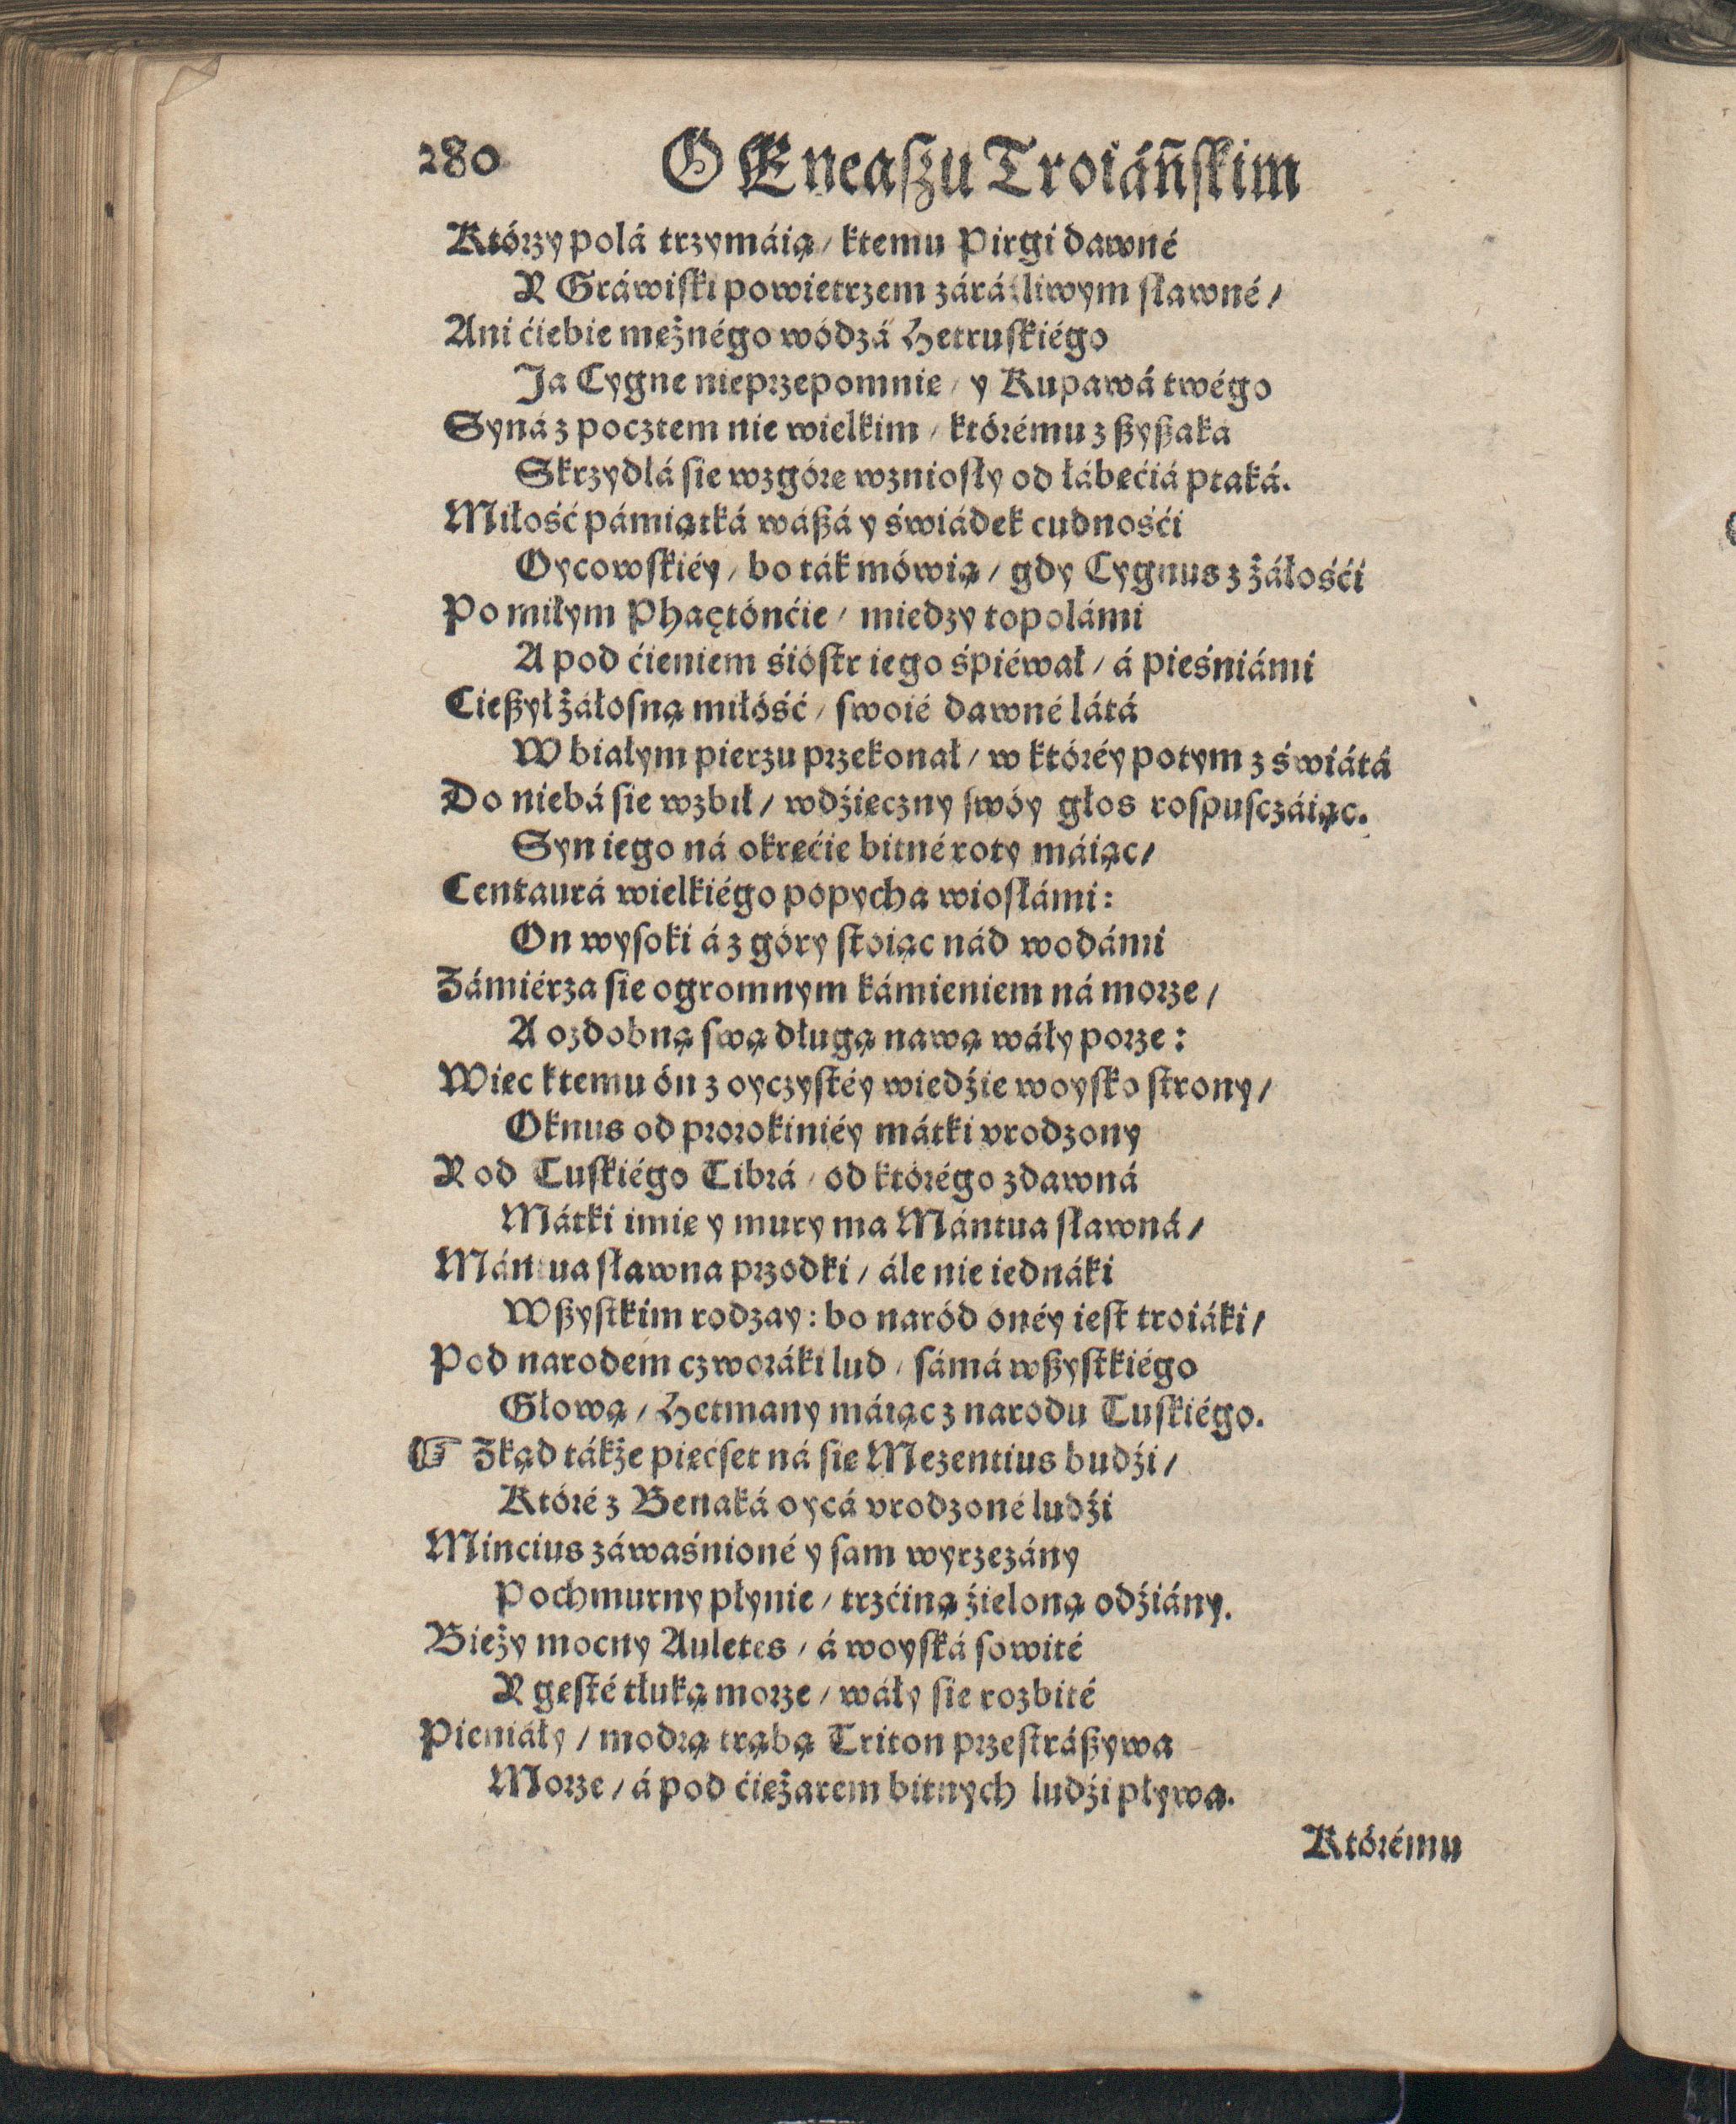 280 O Eneaſzu Troiáńſkim
Którzy polá trzymáią / ktemu Pirgi dawné
Y Gráwiſki powietrzem záráźliwym ſławné /
Ani ćiebie mężnégo wódzá Hetruſkiégo
Ja Cygne nieprzepomnię / y Kupawá twégo
Syná z pocztem nie wielkim / którému z ßyßaká
Skrzydlá ſie wzgórę wznioſły od łábęćiá ptaká.
Miłość pámiątká wáßá y świádek cudnośći
Oycowſkiéy / bo ták mówią / gdy Cygnus z żáłośći
Po miłym Phaętónćie / miedzy topolámi
A pod ćieniem śióſtr iego śpiéwał / á pieśniámi
Cießył żáłoſną miłóść / ſwoié dawné látá
W białym pierzu przekonał / w któréy potym z świátá
Do niebá ſie wzbił / wdźięczny ſwóy głos roſpuſczáiąc.
Syn iego ná okręćie bitné roty máiąc /
Centaurá wielkiégo popycha wioſłámi :
On wyſoki á z góry ſtoiąc nád wodámi
Zámiérza ſie ogromnym kámieniem ná morze /
A ozdobną ſwą długą nawą wáły porze :
Więc ktemu ón z oyczyſtéy wiedźie woyſko ſtrony /
Oknus od prorokiniéy mátki vrodzony
Y od Tuſkiégo Tibrá / od którégo zdawná
Mátki imię y mury ma Mántua ſławná /
Mántua ſławna przodki / ále nie iednáki
Wßyſtkim rodzay : bo naród onéy ieſt troiáki /
Pod narodem czworáki lud / ſámá wßyſtkiégo
Głową / Hetmany máiąc z narodu Tuſkiégo.
☞ Zkąd tákże pięćſet ná ſię Mezentius budźi /
Któré z Benaká oycá vrodzoné ludźi
Mincius záwaśnioné y ſam wyrzezány
Pochmurny płynie / trzćiną źieloną odźiány.
Bieży mocny Auletes / á woyſká ſowité
Y gęſté tłuką morze / wáły ſie rozbité
Pieniáły / modrą trąbą Triton przeſtráßywa
Morze / á pod ćiężarem bitnych ludźi pływa.
Którému